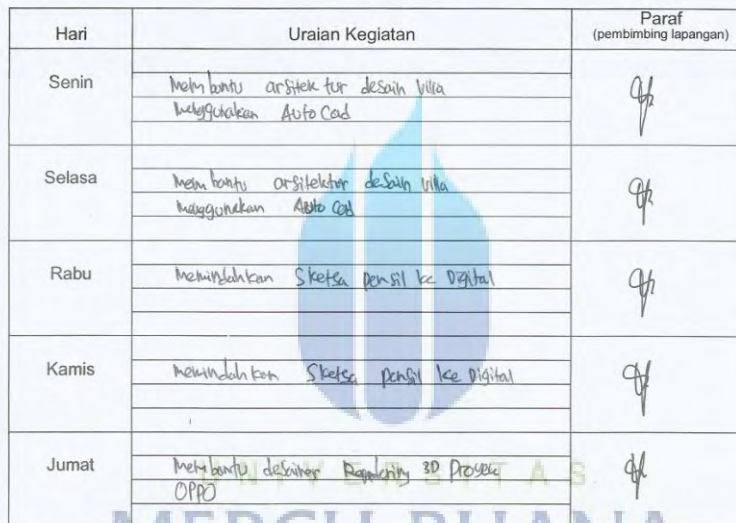 Hari Uraian Kegiatan Paraf
(pembimbing lapangan)
Senin
Membantu arsitek tur desain villa
menggunakan Auto Cad
Selasa
Membantu arsitektur desain villa
menggunakan Auto Cad
Rabu
memindahkan Sketsa pensil ke Digital
Kamis
memindahkan Sketsa pensil ke Digital
Jumat
Membantu desainer Rendering 3D Proyek
OPPO
UNIVERSITAS
MERCU BUANA